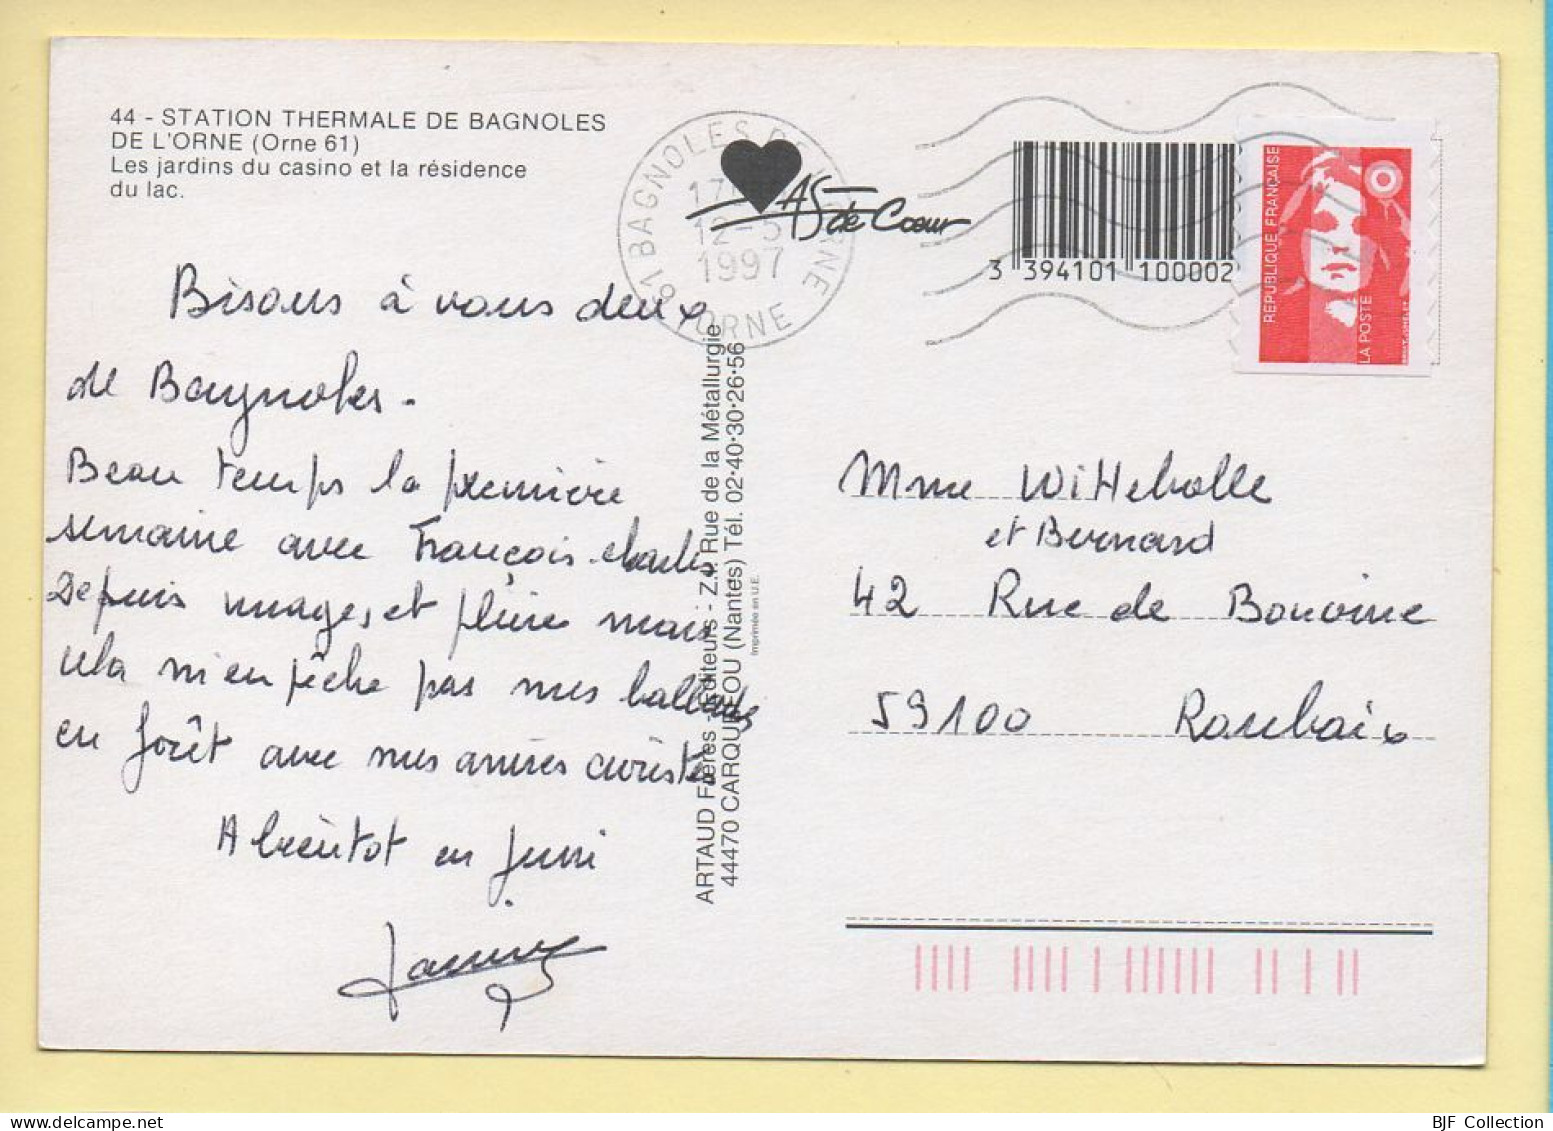 44 - STATION THERMALE DE BAGNOLES
DE L'ORNE (Orne 61)
Les jardins du casino et la résidence
du lac.
61 BAGNOLES DE L'ORNE
12-5
1997
ORNE
AS de Cœur
3 394101 100002
RÉPUBLIQUE FRANÇAISE
LA POSTE
Bisous à vous deux
de Bagnoles.
Beau temps la première
semaine avec François-Charles
Depuis nuages et pluie mais
cela n'empêche pas mes ballades
en forêt avec mes amies curistes
A bientôt en juin
ARTAUD Frères - Éditeurs - Z.I. Rue de la Métallurgie
44470 CARQUEFOU (Nantes) Tél. 02·40·30·26·56
Imprimée en U.E.
Mme Wittebolle
et Bernard
42 Rue de Bouvine
59100 Roubaix
BJF Collection